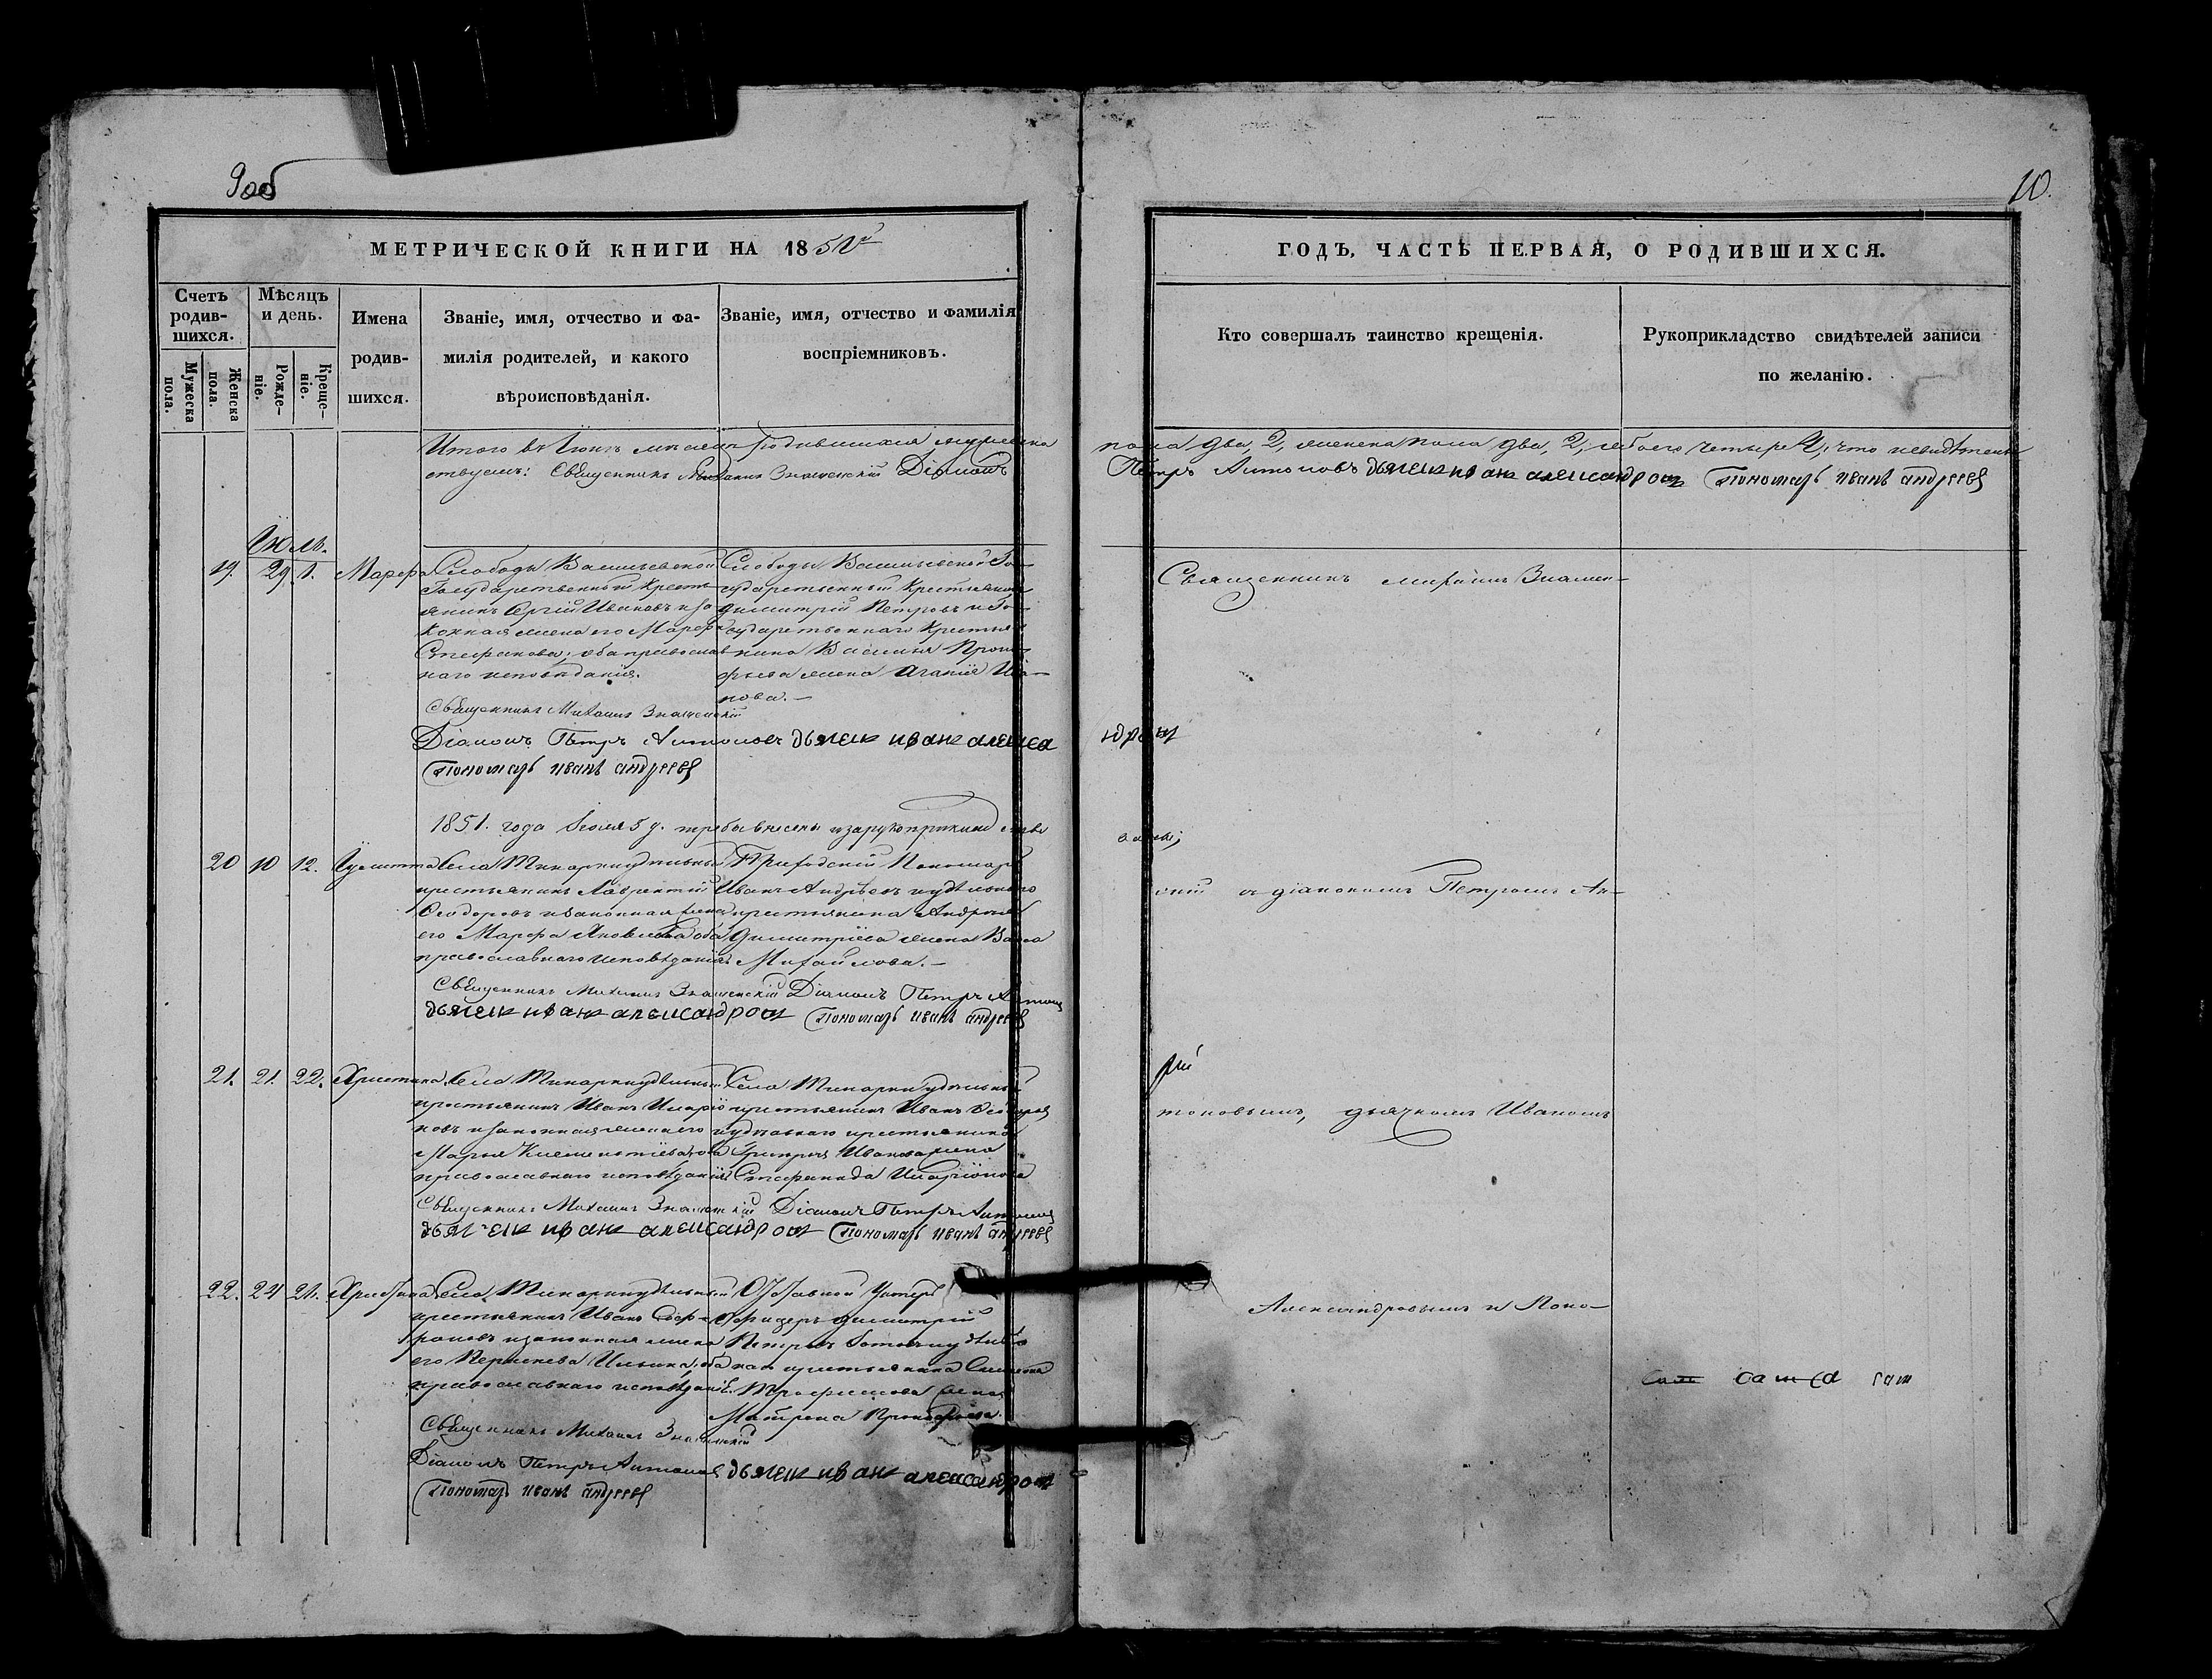 9об
10.
МЕТРИЧЕСКОЙ КНИГИ НА 1851й
ГОДЪ, ЧАСТЬ ПЕРВАЯ, О РОДИВШИХСЯ.
Счетъ родив-
шихся.
Мужеска пола.
Женска пола.
Мѣсяцъ и день.
Рожде-
ніе.
Креще-
ніе.
Имена
родив-
шихся.
Званіе, имя, отчество и фа-
милія родителей, и какого
вѣроисповѣданія.
Званіе, имя, отчество и фамилія
воспріемниковъ.
Кто совершалъ таинство крещенія.
Рукоприкладство свидѣтелей записи
по желанію.
Итого въ Іюнѣ мѣсяцѣ родившихся мужеска пола два, 2, женска пола два, 2, обоего четыре 4, что
ствуемъ: Священникъ Михаилъ Знаменскій Діаконъ Петръ Антоновъ дьячекъ иванъ александровъ Пономарь иванъ андреевъ
Іюль.
19. 29 1. Марфа
Слободы Васильевской
Государственный крест-
янинъ Сергій Ивановъ и за-
конная жена его Марфа
Стефанова, оба православ-
наго исповѣданія.
Слободы Васильевской Го-
сударственный Крестьянинъ
Димитрій Петровъ и Го-
сударственнаго Крестья-
нина Василья Проко-
фьева жена Агапія Ива-
нова.
Священникъ Михаилъ Знамен-
Священникъ Михаилъ Знаменскій
Діаконъ Петръ Антоновъ дьячекъ иванъ александровъ
Пономарь иванъ андреевъ
1851. года Іюля 5 д. треба внесена и зарукоприкладствована;
20 10 12. Іулитта
Села Тинарки удѣльный
крестьянинъ Лаврентій
Ѳеодоровъ и законная жена
его Марфа Яковлева оба
православнаго исповѣданія
Приходскій Пономарь
Иванъ Андреевъ и удѣльнаго
крестьянина Андрея
Димитріева жена Васса
Михайлова.
скій съ діакономъ Петромъ Ан-
Священникъ Михаилъ Знаменскій Діаконъ Петръ Антоновъ
дьячекъ иванъ александровъ Пономарь иванъ андреевъ
21. 21. 22. Христина
Села Тинарки удѣльный
крестьянинъ Иванъ Иларіо-
новъ и законная жена его
Марья Климентіева, оба
православнаго исповѣданія
Села Тинарки удѣльный
крестьянинъ Иванъ Ѳеодоровъ
и удѣльнаго крестьянина
Григорья Иванова жена
Стефанида Иларіонова
тоновымъ, дьячкомъ Иваномъ
Священникъ Михаилъ Знаменскій Діаконъ Петръ Антоновъ
дьячекъ иванъ александровъ Пономарь иванъ андреевъ
22. 24 21. Христина
Села Тинарки удѣльный
крестьянинъ Иванъ Соф-
роновъ и законная жена
его Ильина, оба
православнаго исповѣданія.
Отставной Унтеръ
Офицеръ Димитрій
Петровъ и удѣль-
наго крестьянина
Трофимова жена
Матрена Прокофьева.
Александровымъ и Поно-
сам
Священникъ Михаилъ Знаменскій
Діаконъ Петръ Антоновъ дьячекъ иванъ александровъ
Пономарь иванъ андреевъ